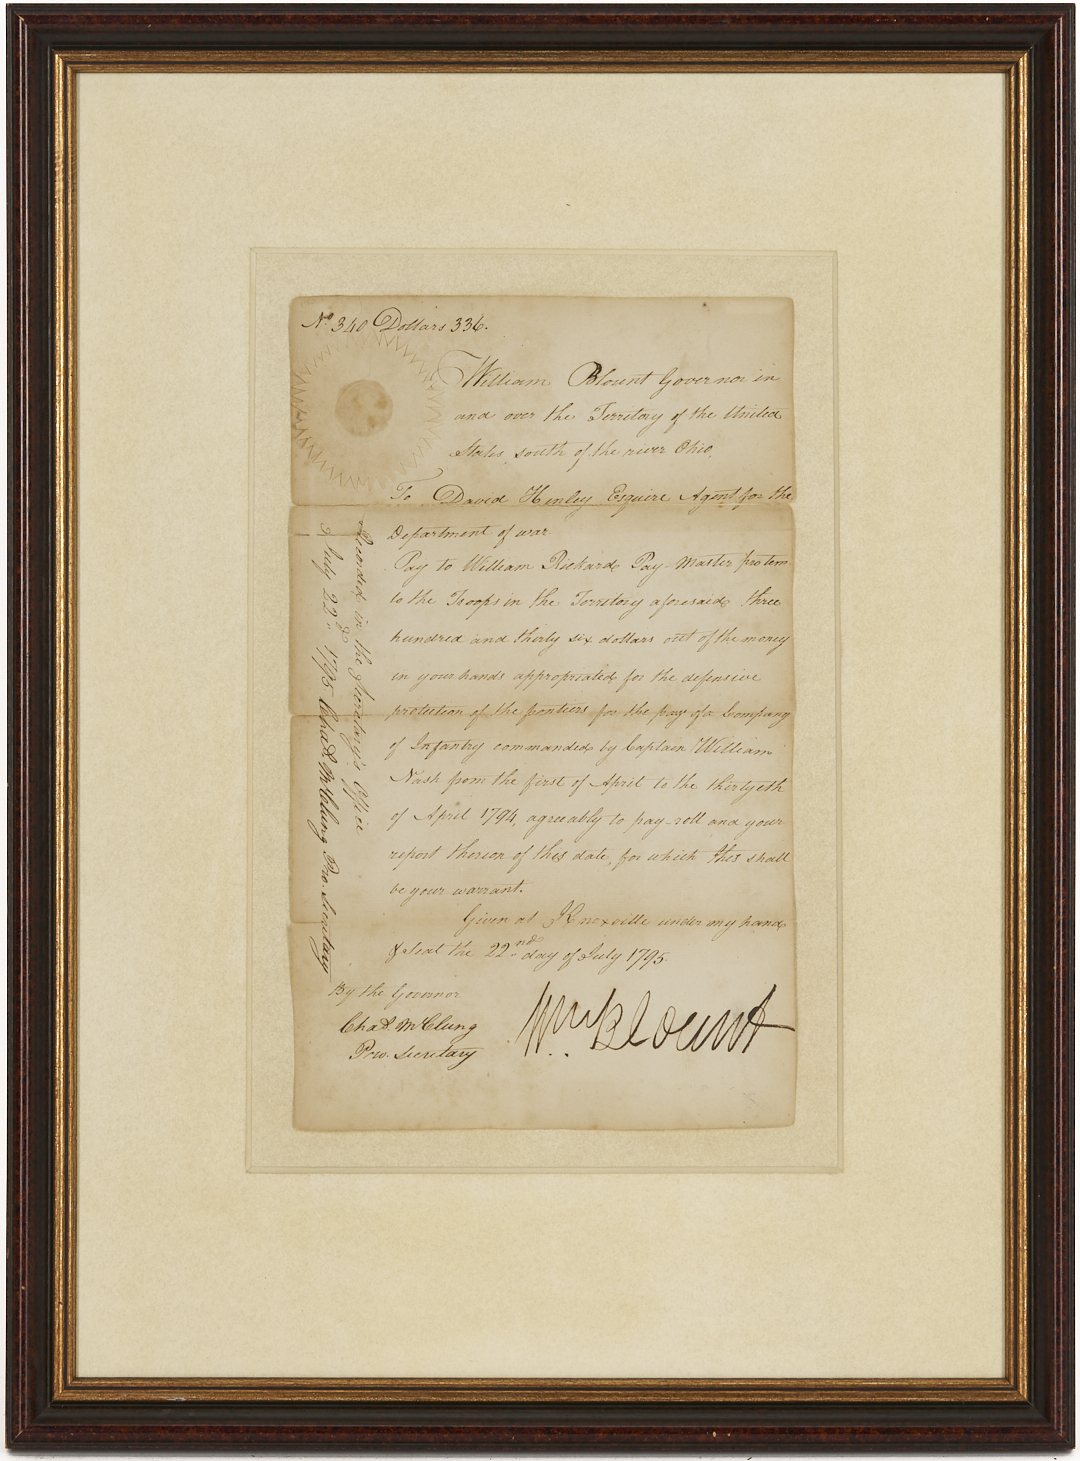 No. 340 Dollars 336.
William Blount Governor in
and over the Territory of the United
States, south of the river Ohio,
To David Henley Esquire Agent for the
Department of war
Pay to William Rickard Pay-Master protem
to the Troops in the Territory aforesaid, three
hundred and thirty six dollars out of the money
in your hands appropriated for the defensive
protection of the frontiers for the pay of a Company
of Infantry commanded by Captain William
Nash from the first of April to the thirtyeth
of April 1794, agreeably to pay-roll and your
report thereon of this date, for which this shall
be your warrant.
Given at Knoxville under my hand
& Seal the 22nd day of July 1795.
By the Governor
Chas McClung
Pro. Secretary
Wm Blount
Recorded in the Secretary's Office
July 22d 1795 Chas McClung Pro. Secretary